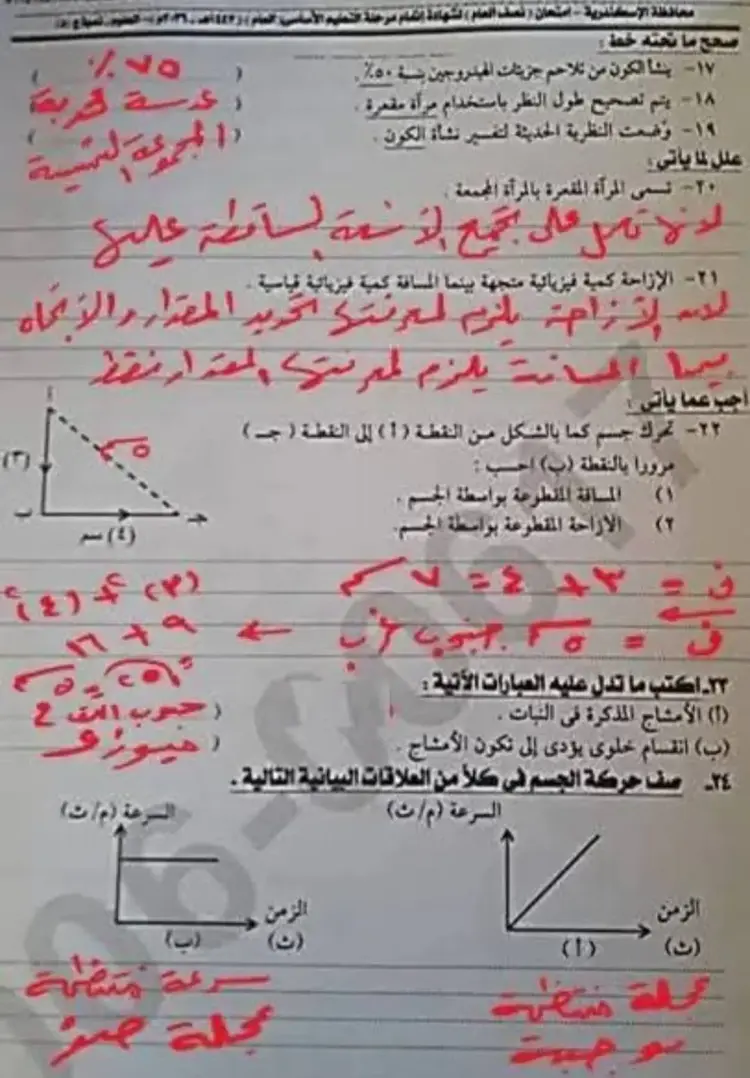 محافظة الإسكندرية - امتحان ( نصف العام ) لشهادة إتمام مرحلة التعليم الأساسى ( العام )
صحح ما تحته خط :
١٧- ينشأ الكون من تلاحم جزيئات الهيدروجين بنسبة ٥٠٪ . ( ٧٥ ٪ )
١٨- يتم تصحيح طول النظر باستخدام مرآة مقعرة . ( عدسة محدبة )
١٩- وُضعت النظرية الحديثة لتفسير نشأة الكون . ( المجموعة الشمسية )
علل لما يأتى :
٢٠- تسمى المرآة المقعرة بالمرآة المجمعة .
لانها تعمل على تجميع الاشعة الساقطة عليها
٢١- الإزاحة كمية فيزيائية متجهة بينما المسافة كمية فيزيائية قياسية .
لان الإزاحة يلزم لمعرفتها تحديد المقدار والاتجاه
بينما المسافة يلزم لمعرفتها المقدار فقط
أجب عما يأتى :
٢٢- تحرك جسم كما بالشكل من النقطة ( أ ) إلى النقطة ( جـ )
مرورا بالنقطة (ب) احسب :
١) المسافة المقطوعة بواسطة الجسم .
٢) الازاحة المقطوعة بواسطة الجسم.
أ
٥ سم
(٣)
ب
جـ
(٤) سم
ف = ٣ + ٤ = ٧ سم
ف = ٥ سم جنوب غرب ←
(٣)٢ + (٤)٢
٩ + ١٦
= √٢٥ = ٥ سم
٢٣- اكتب ما تدل عليه العبارات الآتية :
(أ) الأمشاج المذكرة فى النبات . ( حبوب اللقاح )
(ب) انقسام خلوى يؤدى إلى تكون الأمشاج . ( ميوزى )
٢٤- صف حركة الجسم فى كلاً من العلاقات البيانية التالية .
السرعة (م/ث)
الزمن
(ث)
(أ)
السرعة (م/ث)
الزمن
(ث)
(ب)
عجلة منتظمة
موجبة
سرعة منتظمة
عجلة صفر